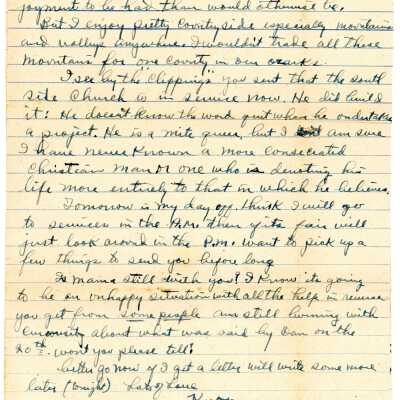 joyment to be had than would otherwise be.
But I enjoy pretty Countryside especially mountains
and valleys anywhere. I wouldn't trade all these
mountains for one County in our ozarks.
I see by the "Clippings" you sent that the south
side Church is in service now. He did build
it! He doesn't know the word quit when he undertakes
a project. He is a mite queer, but I am sure
I have never known a more consecrated
Christian man or one who is devoting his
life more entirely to that in which he believes.
Tomorrow is my day off. think I will go
to services in the A.M. then if its fair will
just look around in the P.M. want to pick up a
few things to send you before long
Is Mama still with you? I Know its going
to be an unhappy situation with all the help in reverse
you get from some people am still burning with
curiosity about what was said by Dan on the
20th. won't you please tell!
better go now if I get a letter will write some more
later (tonight) Lots of Love